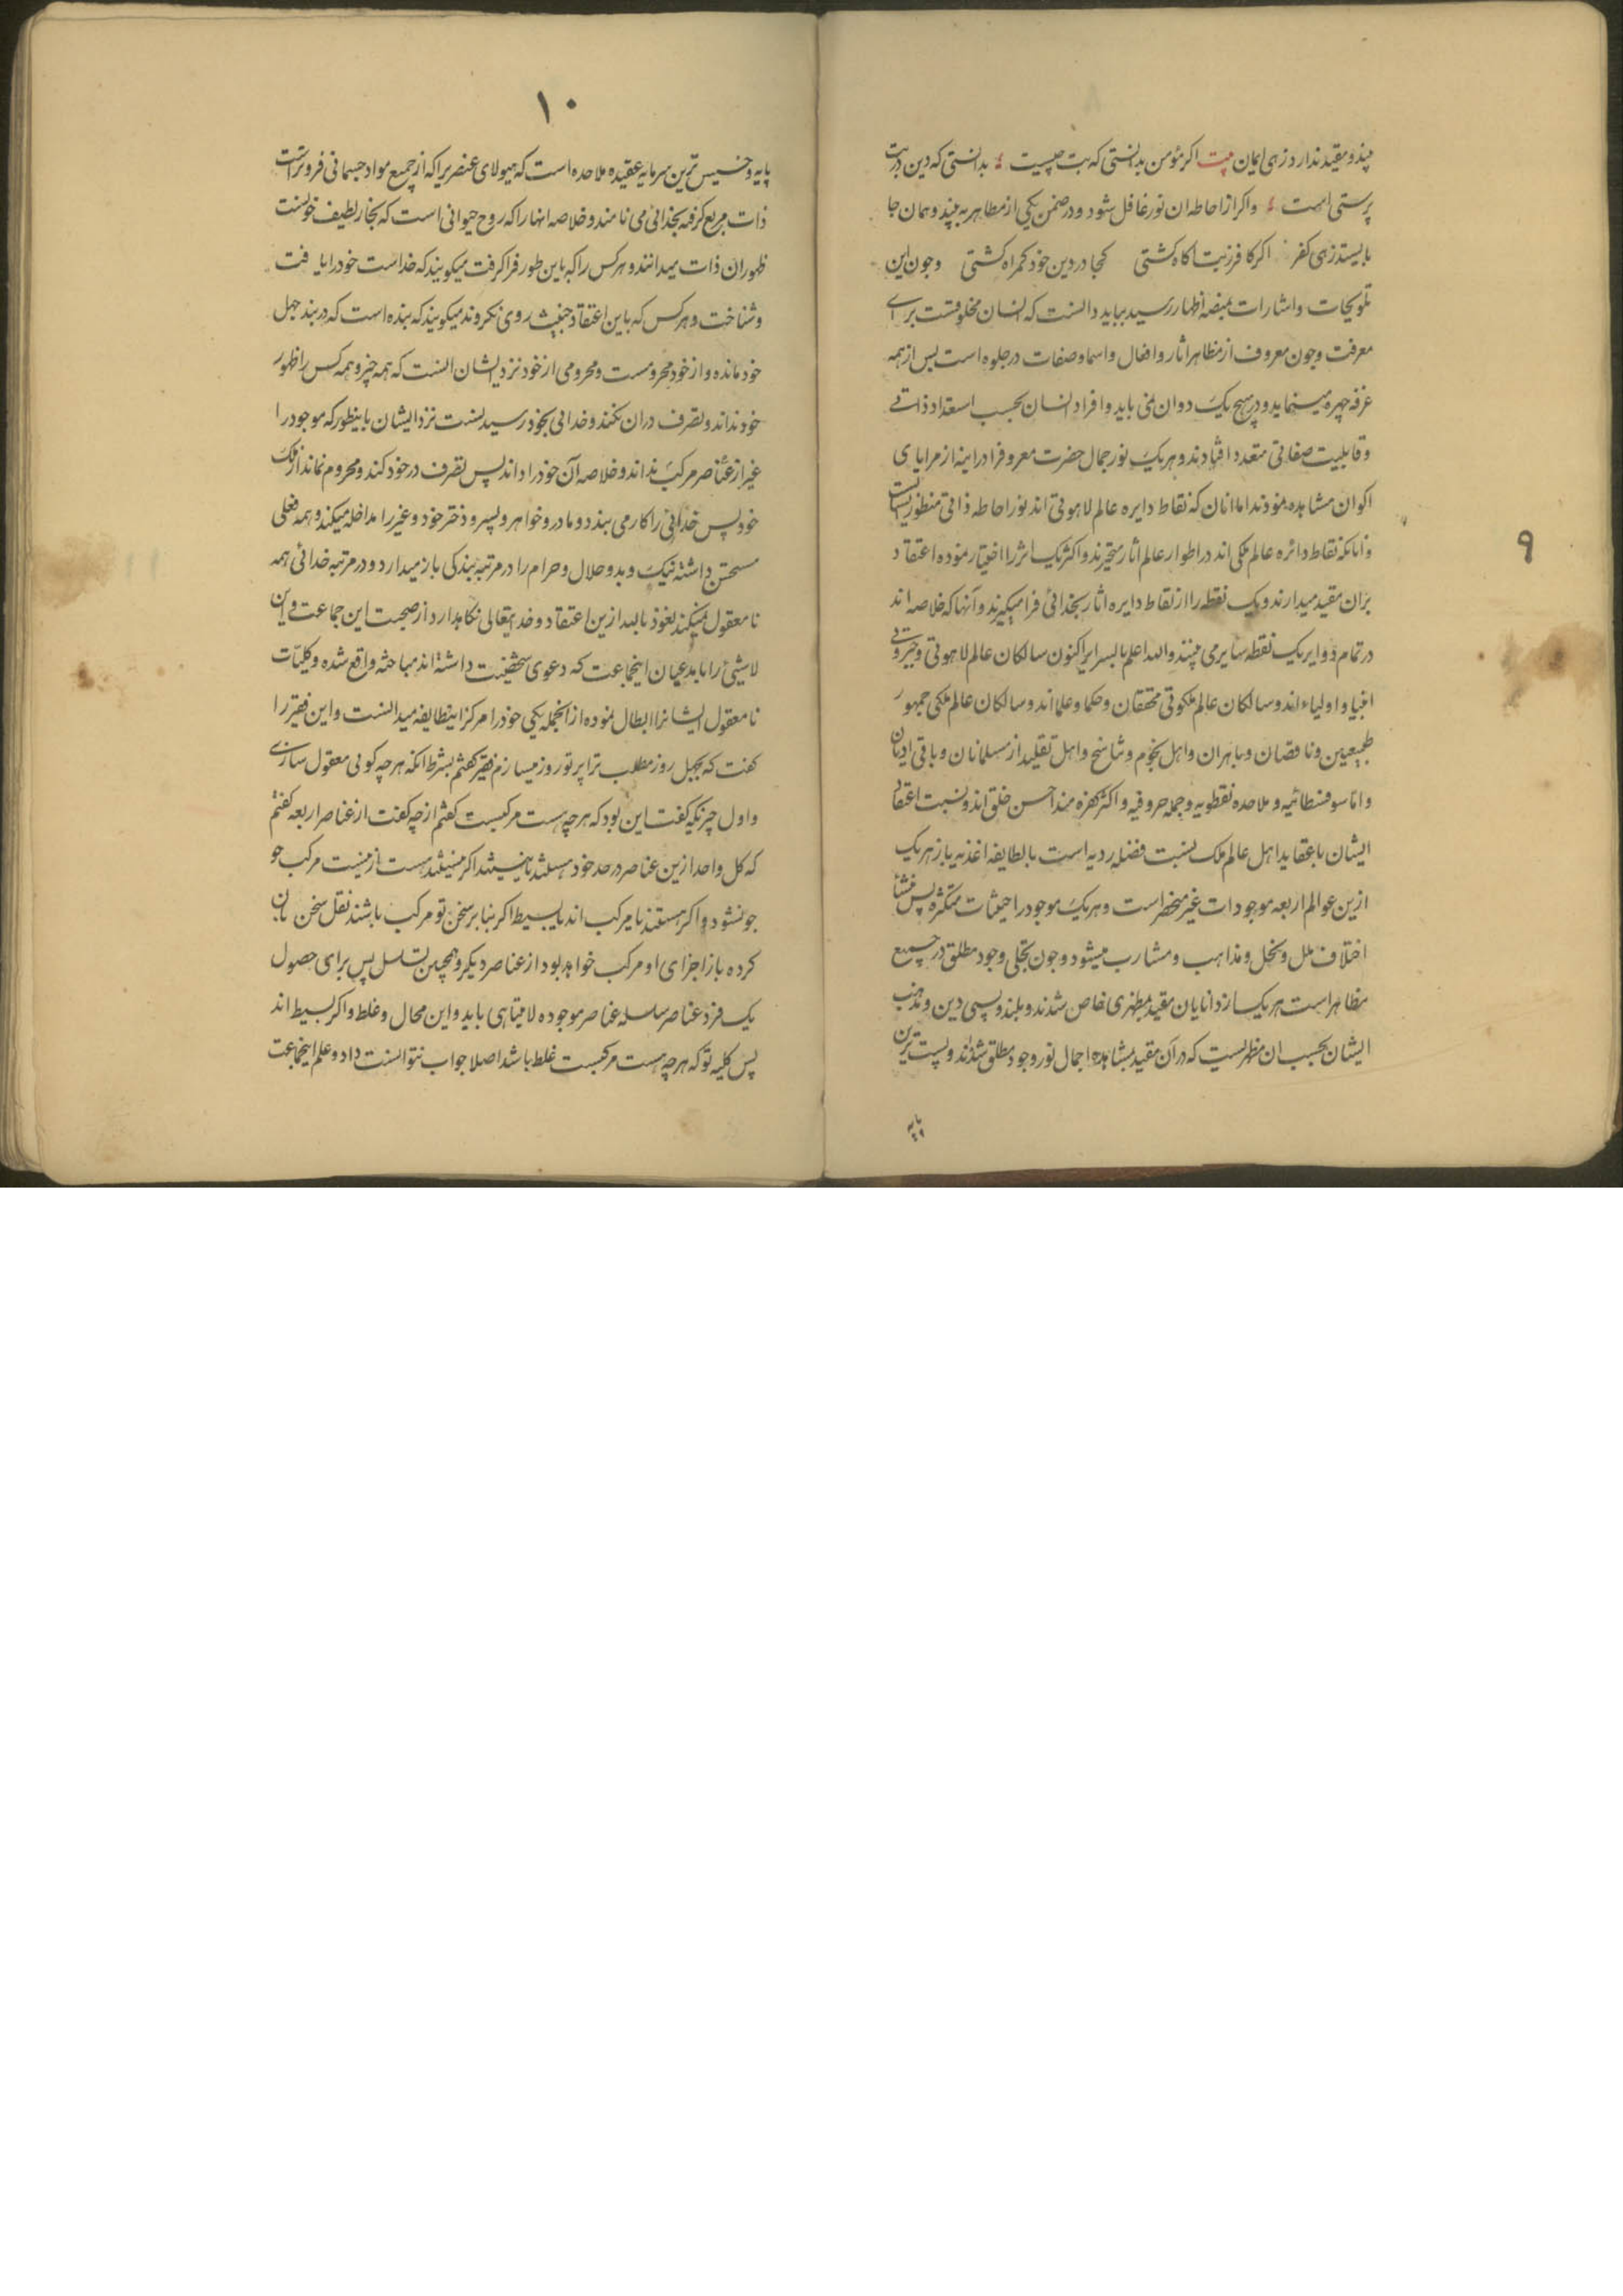 ۹
بیند و مقید ندارد زهی ایمان بیت اکر مؤمن بدانستی که بت چیست بدانستی که دین در بت
پرستی است و اکر از احاطه ان نور غافل شود و در ضمن یکی از مظاهر به بیند و همان جا
بایستد زهی کفر اکر کافر زبت اکاه کشتی کجا در دین خود کمراه کشتی و چون این
تلویحات و اشارات بمنصه اظهار رسید بباید دانست که انسان مخلوقست برای
معرفت و چون معروف از مظاهر اثار و افعال و اسما و صفات در جلوه است پس از همه
غرفه چهره مینماید و در هیچ یک دوان نمی باید و افراد انسان بحسب استعداد ذاتی
و قابلیت صفاتی متعدد افتادند و هر یک نور جمال حضرت معروف را در اینه از مرایای
اکوان مشاهده نمودند اما انان که نقاط دایره عالم لاهوتی اند نور احاطه ذاتی منظور ایشان
و انانکه نقاط دائره عالم ملکی اند در اطوار عالم اثار متحیرند و اکثر یک اثر را اختیار نموده اعتقاد
بران مقید میدارند و یک نقطه را از نقاط دایره اثار بخدائی فرا میکیرند و آنها که خلاصه اند
در تمام دوایر یک نقطه سایر می بینند والله اعلم بالسرایر اکنون سالکان عالم لاهوتی و جبروتی
انبیا و اولیاء اند و سالکان عالم ملکوتی محققان و حکما و علما اند و سالکان عالم ملکی جمهور
طبیعیین و ناقصان و باهران و اهل نجوم و تناسخ و اهل تقلید از مسلمانان و باقی ادیان
و اما سوفسطائیه و ملاحده نقطویه و جمله حروفیه و اکثر کفره هند اخس خلق اند و نسبت اعتقاد
ایشان با عقاید اهل عالم ملک نسبت فضله ردیه است با لطایف اغذیه باز هر یک
ازین عوالم اربعه موجودات غیر منحصر است و هر یک موجود را حیثیات متکثره پس منشأ
اختلاف ملل و نحل و مذاهب و مشارب میشود و چون تجلی وجود مطلق در جمیع
مظاهر است هر یک از دانایان مقید بمظهری خاص شدند و بلند و پستی دین و مذهب
ایشان بحسب ان مظهریست که در آن مقید بمشاهده اجمال نور وجود مطلق شدند و پست ترین
پایه
۱۰
پایه و خسیس ترین سرمایه عقیده ملاحده است که هیولای عنصر یرا که از جمیع مواد جسمانی فروتر است
ذات مربع کرفته بخدائی می نامند و خلاصه انها را که روح حیوانی است که بخار لطیف خونست
ظهور ان ذات میدانند و هر کس را که باین طور فرا کرفت میکویند که خداست خود را یافت
و شناخت و هر کس که باین اعتقاد خبیث روی نکرو ند میکویند که بنده است که در بند جهل
خود مانده و از خود محرومست و محرومی از خود نزد ایشان انست که همه چیز و همه کس را ظهور
خود نداند و تصرف دران نکند و خدائی بخود رسیدنست نزد ایشان باینطور که موجود را
غیر از عناصر مرکب نداند و خلاصه آن خود را داند پس تصرف در خود کند و محروم نماند از
خود پس خدائی را کار می بندد و مادر و خواهر و پسر و دختر خود و غیر را مداخله میکند و همه فعلی
مستحسن داشته نیک و بد و حلال و حرام را در مرتبه بندکی باز میدارد و در مرتبه خدائی همه
نا معقول میکند نعوذ بالله ازین اعتقاد و خدایتعالی نکاهدارد از صحبت این جماعت و این
لاشیئ را با مدعیان اینجماعت که دعوی شخصیت داشته اند مباحثه واقع شده و کلیّات
نا معقول ایشانرا ابطال نموده از انجمله یکی خود را مرکز اینطایفه میدانست و این فقیر را
کفت که بچهل روز مطلب ترا بر تو روز میسازم فقیر کفتم بشرط انکه هرچه کوئی معقول سازی
و اول چیزیکه کفت این بود که هرچه هست مرکبست کفتم از چه کفت از عناصر اربعه کفتم
که کل واحد ازین عناصر در حد خود هستند یا نیستند اکر نیستند هست از نیست مرکب چو
جو نشود و اکر هستند یا مرکب اند یا بسیط اکر بنابر سخن تو مرکب باشند نقل سخن بان
کرده باز اجزای او مرکب خواهد بود از عناصر دیکر و همچنین تسلسل پس برای حصول
یک فرد عناصر سلسله عناصر موجوده لا متناهی باید و این محال و غلط و اکر بسیط اند
پس کلیه تو که هرچه هست مرکبست غلط باشد اصلا جواب نتوانست داد و علم اینجماعت